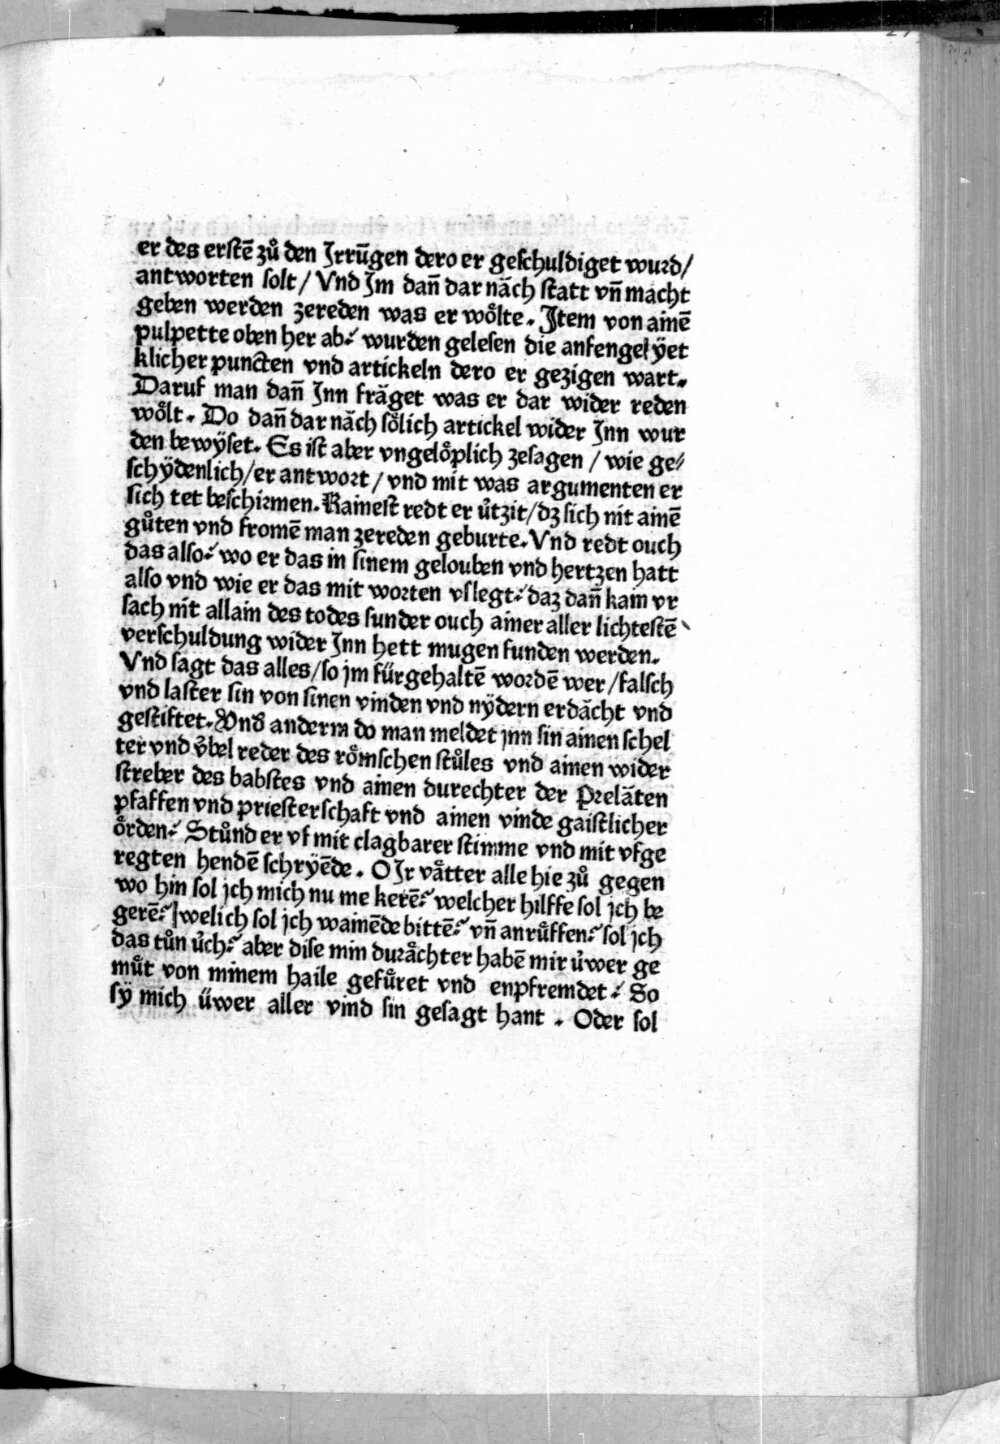 er des erstē zů den Jrrūgen dero er geschuldiget wurd/
antworten solt / Vnd Jm dañ dar nāch statt vñ macht
geben werden zereden was er wo̊lte. Jtem von ainē
pulpette oben her ab: wurden gelesen die anfengel ÿet
klicher puncten vnd artickeln dero er gezigen wart.
Daruf man dañ Jnn frăget was er dar wider reden
wo̊lt. Do dañ dar nāch so̊lich artickel wider Jnn wur
den bewÿset. Es ist aber vngelo̊plich zesagen / wie ge/
schÿdenlich/er antwort / vnd mit was argumenten er
sich tet beschirmen. Kainest redt er ůtzit/dz sich nit ainē
gůten vnd fromē man zereden geburte. Vnd redt ouch
das also: wo er das in sinem gelouben vnd hertzen hatt
also vnd wie er das mit worten vslegt: daz dañ kain vr
sach nit allain des todes sunder ouch ainer aller lichtestē
verschuldung wider Jnn hett mugen funden werden.
Vnd sagt das alles/so jm fürgehaltē wordē wer/falsch
vnd laster sin von sinen vinden vnd nÿdern erdācht vnd
gestiftet. Vnd anderm do man meldet jnn sin ainen schel
ter vnd v̊bel reder des ro̊mschen stůles vnd ainen wider
streber des babstes vnd ainen durechter der Prelāten
pfaffen vnd priesterschaft vnd ainen vinde gaistlicher
o̊rden: Stůnd er vf mit clagbarer stimme vnd mit vfge
regten hendē schrÿēde. O Jr våtter alle hie zů gegen
wo hin sol jch mich nu me kerē: welcher hilffe sol jch be
gerē: welich sol jch wainēde bittē: vñ anrůffen: sol jch
das tůn ůch: aber dise min duråchter habē mir ůwer ge
můt von minem haile gefůret vnd enpfremdet: So
sÿ mich üwer aller vind sin gesagt hant . Oder sol